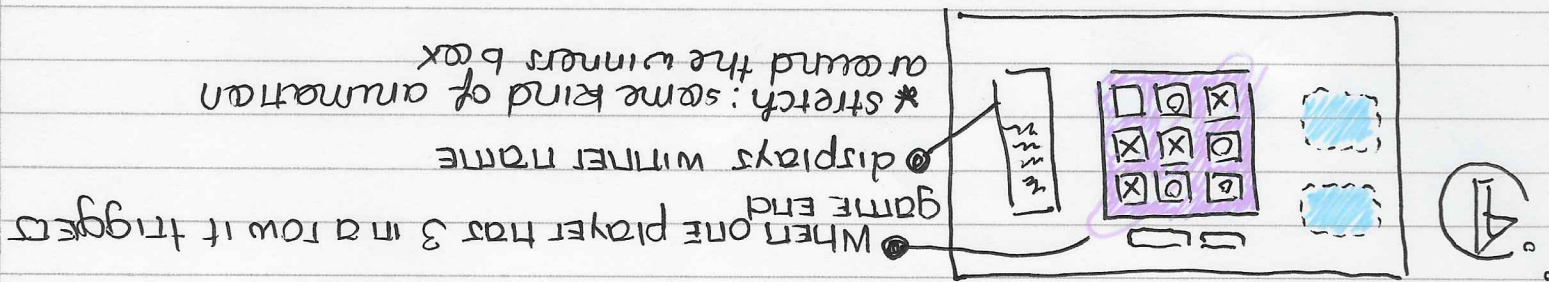 4.
When one player has 3 in a row it triggers
game end
displays winner name
* stretch: some kind of animation
around the winners box
O O X
O X X
X O